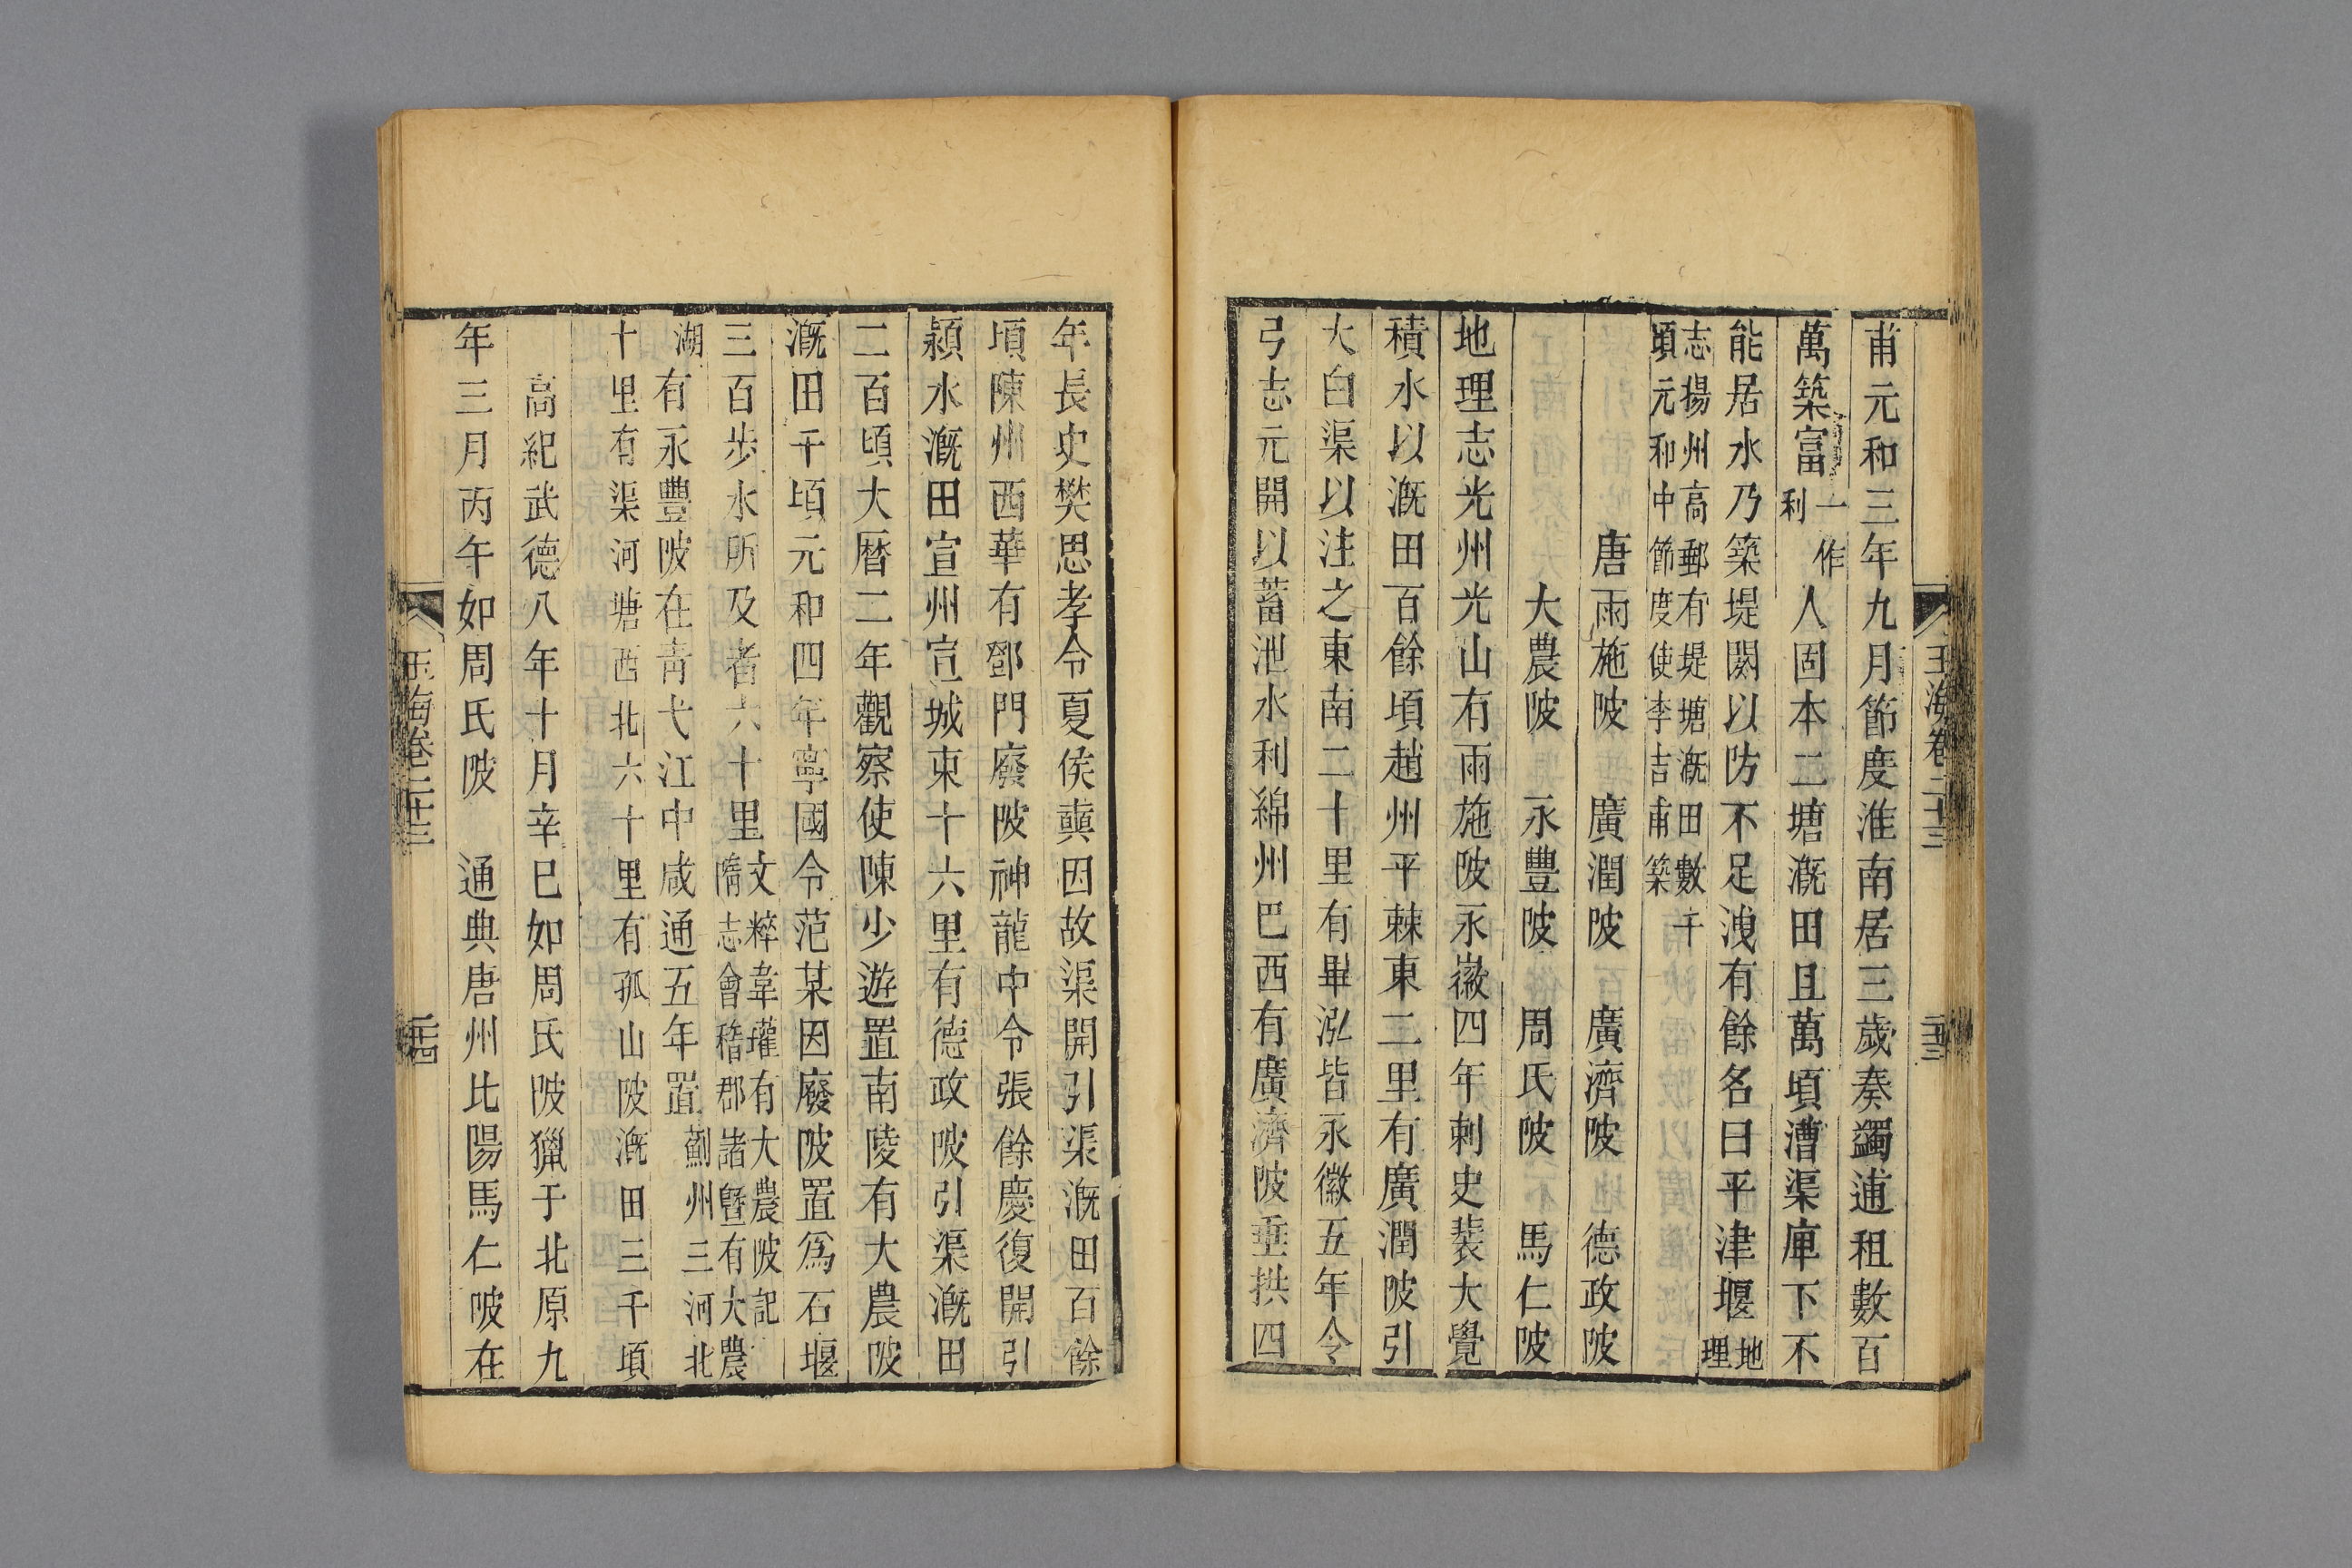 玉海卷二十三
甫元和三年九月節度淮南居三歲奏蠲逋租數百
萬築富一作利人固本二塘漑田且萬頃漕渠庳下不
能居水乃築堤閼以防不足洩有餘名曰平津堰地理
志揚州高郵有堤塘漑田數千
頃元和中節度使李吉甫築
唐雨施陂 廣潤陂 廣濟陂 德政陂
大農陂 永豐陂 周氏陂 馬仁陂
地理志光州光山有雨施陂永徽四年刺史裴大覺
積水以漑田百餘頃趙州平棘東二里有廣潤陂引
大白渠以注之東南二十里有畢泓皆永徽五年令
弓志元開以蓄泄水利綿州巴西有廣濟陂垂拱四
年長史樊思孝令夏侯奭因故渠開引渠漑田百餘
頃陳州西華有鄧門廢陂神龍中令張餘慶復開引
潁水漑田宣州宣城東十六里有德政陂引渠漑田
二百頃大曆二年觀察使陳少遊置南陵有大農陂
漑田千頃元和四年寧國令范某因廢陂置爲石堰
三百步水所及者六十里文粹韋瓘有大農陂記
隋志會稽郡諸曁有大農
湖有永豐陂在靑弋江中咸通五年置薊州三河北
十里有渠河塘西北六十里有孤山陂漑田三千頃
高紀武德八年十月辛巳如周氏陂獵于北原九
年三月丙午如周氏陂 通典唐州比陽馬仁陂在
玉海卷二十三